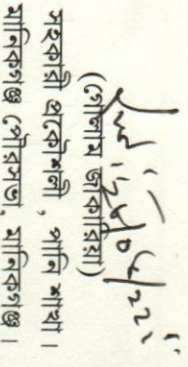 (গোলাম জাকারিয়া)
সহকারী প্রকৌশলী, পানি শাখা।
মানিকগঞ্জ পৌরসভা, মানিকগঞ্জ।